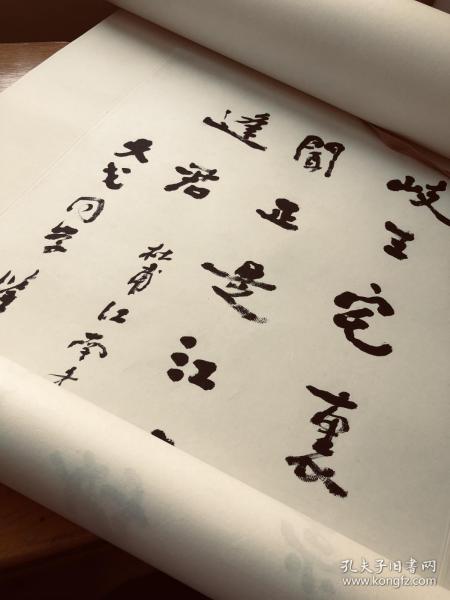 岐王宅裏
聞正是江
逢君
杜甫江南
大
同学
孔夫子旧书网
www.kongfz.com